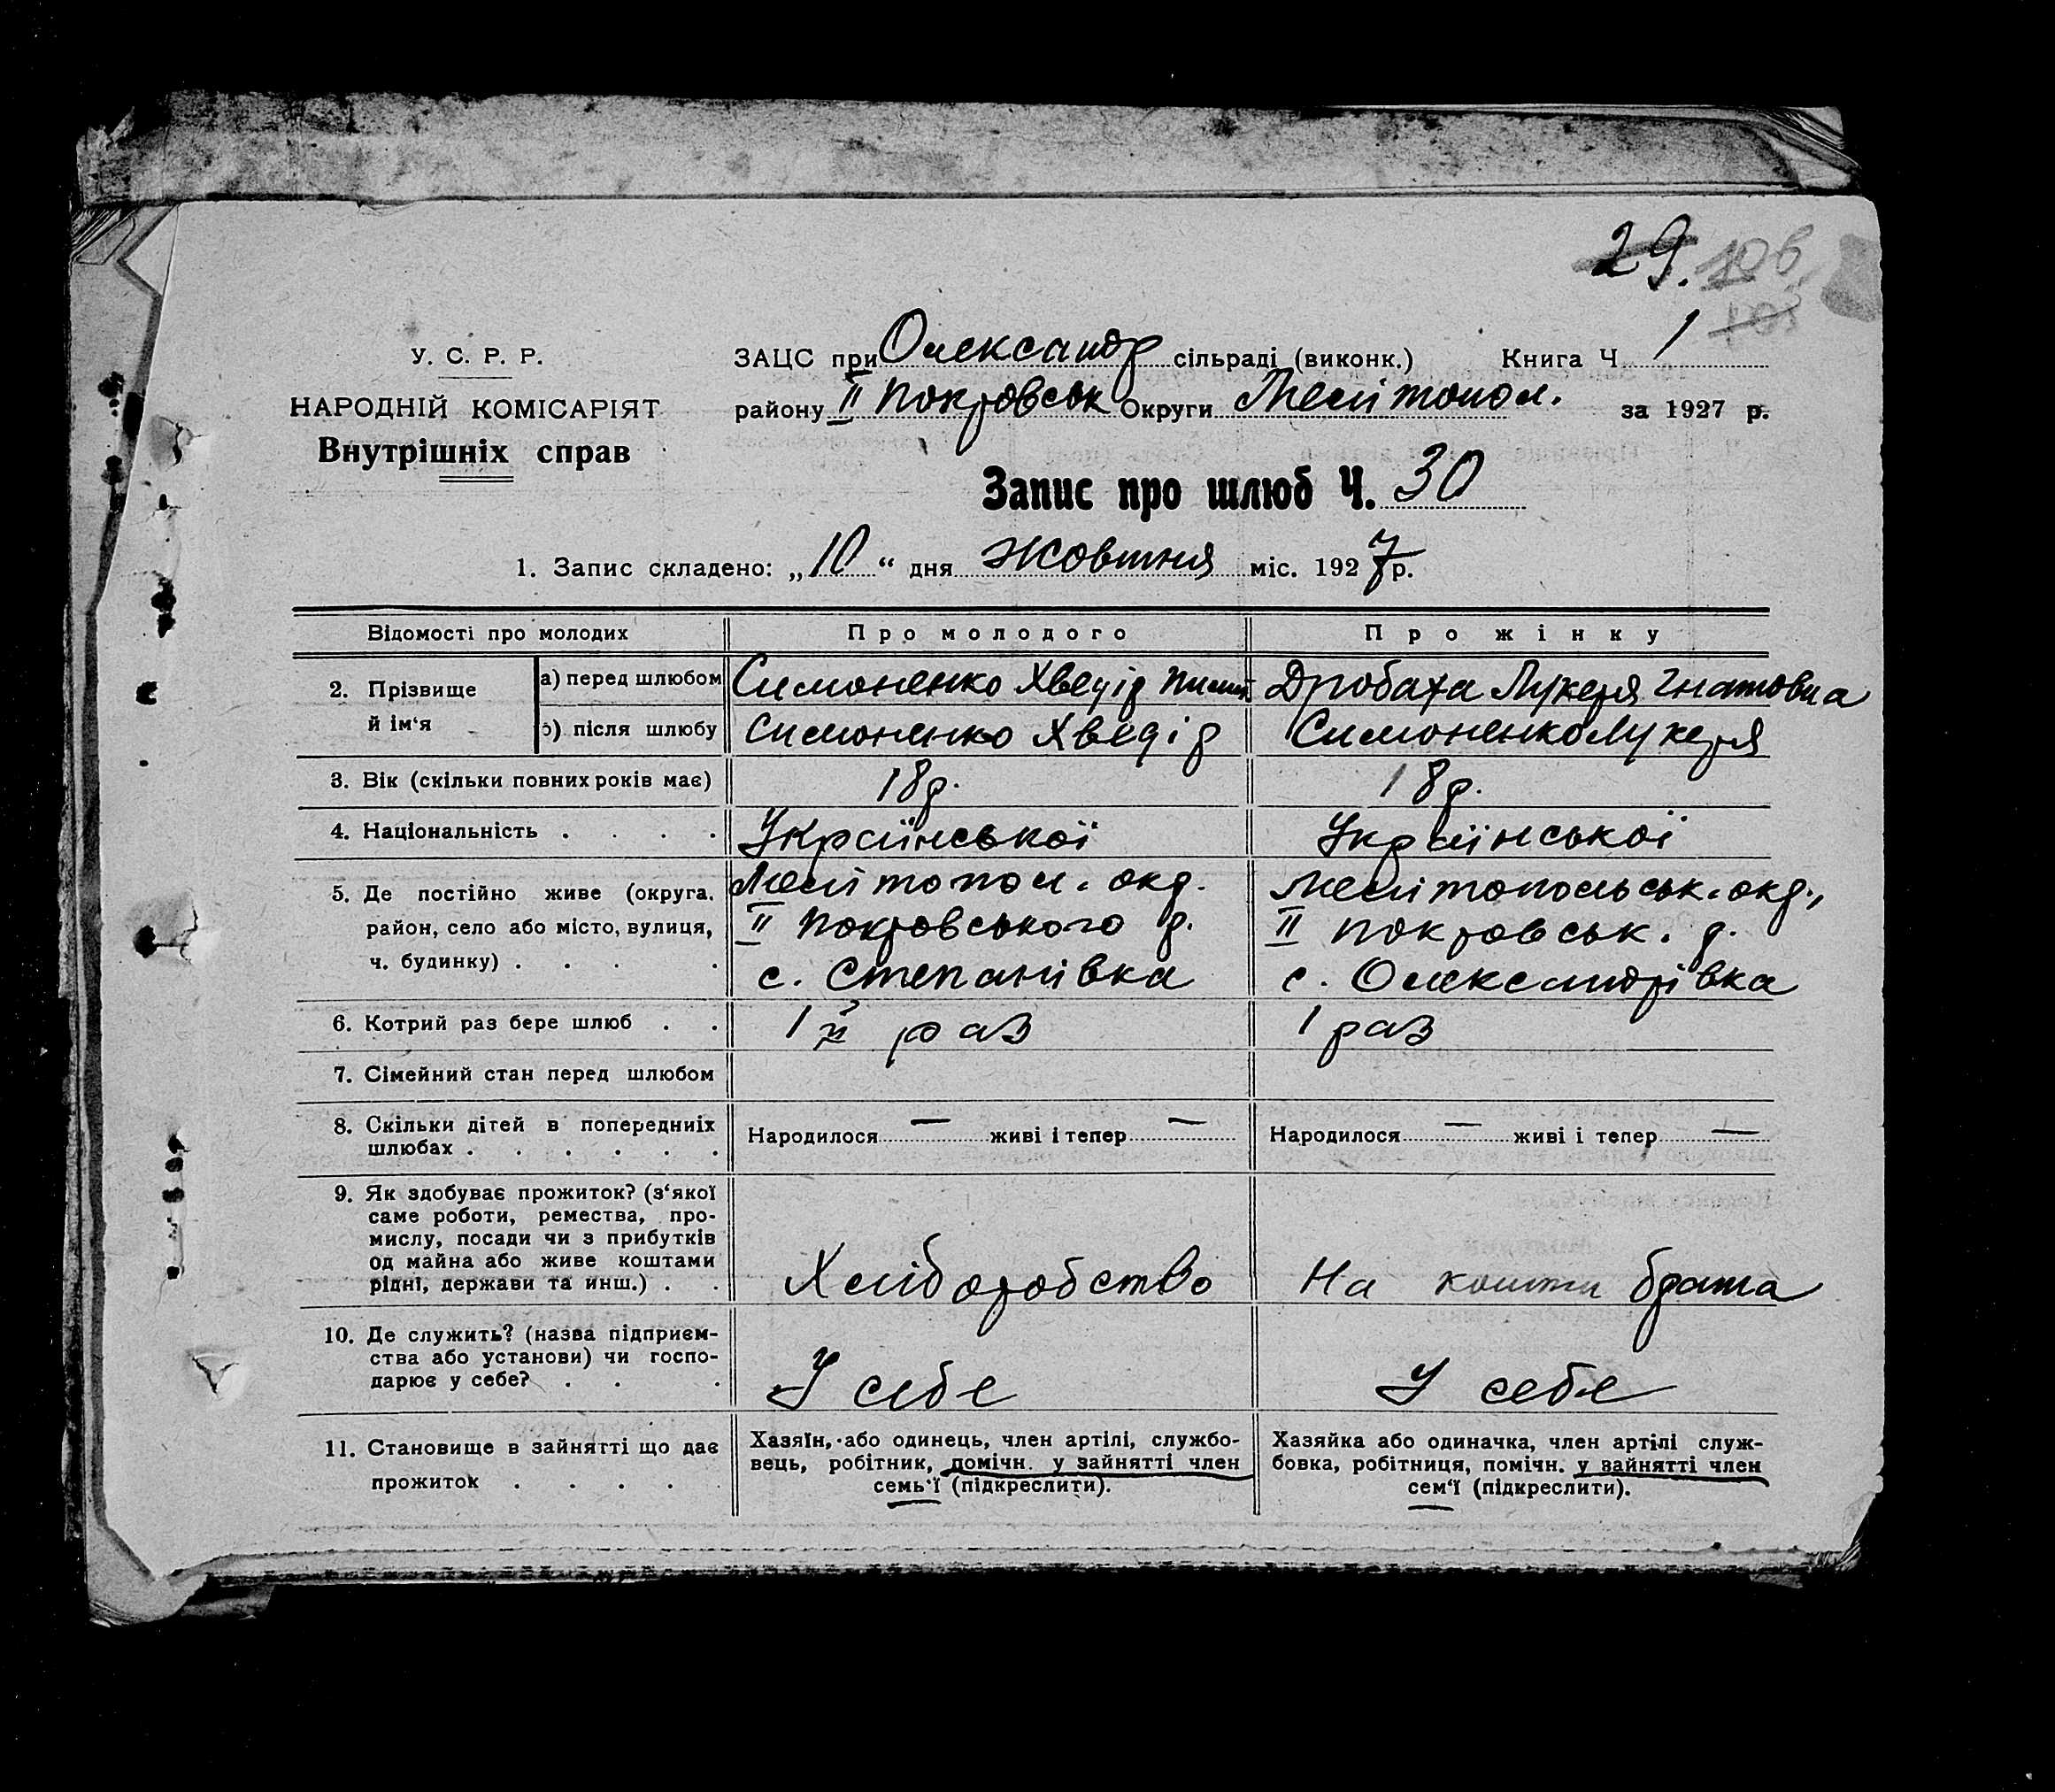 29. 106
103
У. С. Р. Р.
НАРОДНІЙ КОМІСАРІЯТ
Внутрішніх справ
ЗАЦС при Олександр сільраді (виконк.) Книга Ч. 1
району II Покровськ Округи Мелітопол. за 1927 р.
Запис про шлюб Ч. 30
1. Запис складено: „10“ дня Жовтня міс. 1927 р.
Відомості про молодих Про молодого Про жінку
2. Прізвище й ім‘я
а) перед шлюбом Симоненко Хведір Дробаха Лукеря Гнатовна
б) після шлюбу Симоненко Хведір Симоненко Лукеря
3. Вік (скільки повних років має) 18 р. 18 р.
4. Національність . . . . Української Української
5. Де постійно живе (округа, Мелітопол. окр. Мелітопольськ. окр.,
район, село або місто, вулиця, II Покровського р. II Покровськ. р.
ч. будинку) . . . . с. Степанівка с. Олександрівка
6. Котрий раз бере шлюб . . 1й раз 1 раз
7. Сімейний стан перед шлюбом
8. Скільки дітей в попередниіх
шлюбах . . . . . . Народилося — живі і тепер — Народилося — живі і тепер —
9. Як здобуває прожиток? (з‘якої
саме роботи, ремества, про-
мислу, посади чи з прибутків
од майна або живе коштами
рідні, держави та инш.) . . Хліборобство На кошти брата
10. Де служить? (назва підприєм-
ства або установи) чи госпо-
дарює у себе? . . . У себе У себе
11. Становище в зайнятті що дає
прожиток . . . . .
Хазяїн, або одинець, член артілі, службо-
вець, робітник, помічн. у зайнятті член
семь‘ї (підкреслити).
Хазяйка або одиначка, член артілі служ-
бовка, робітниця, помічн. у зайнятті член
сем‘ї (підкреслити).